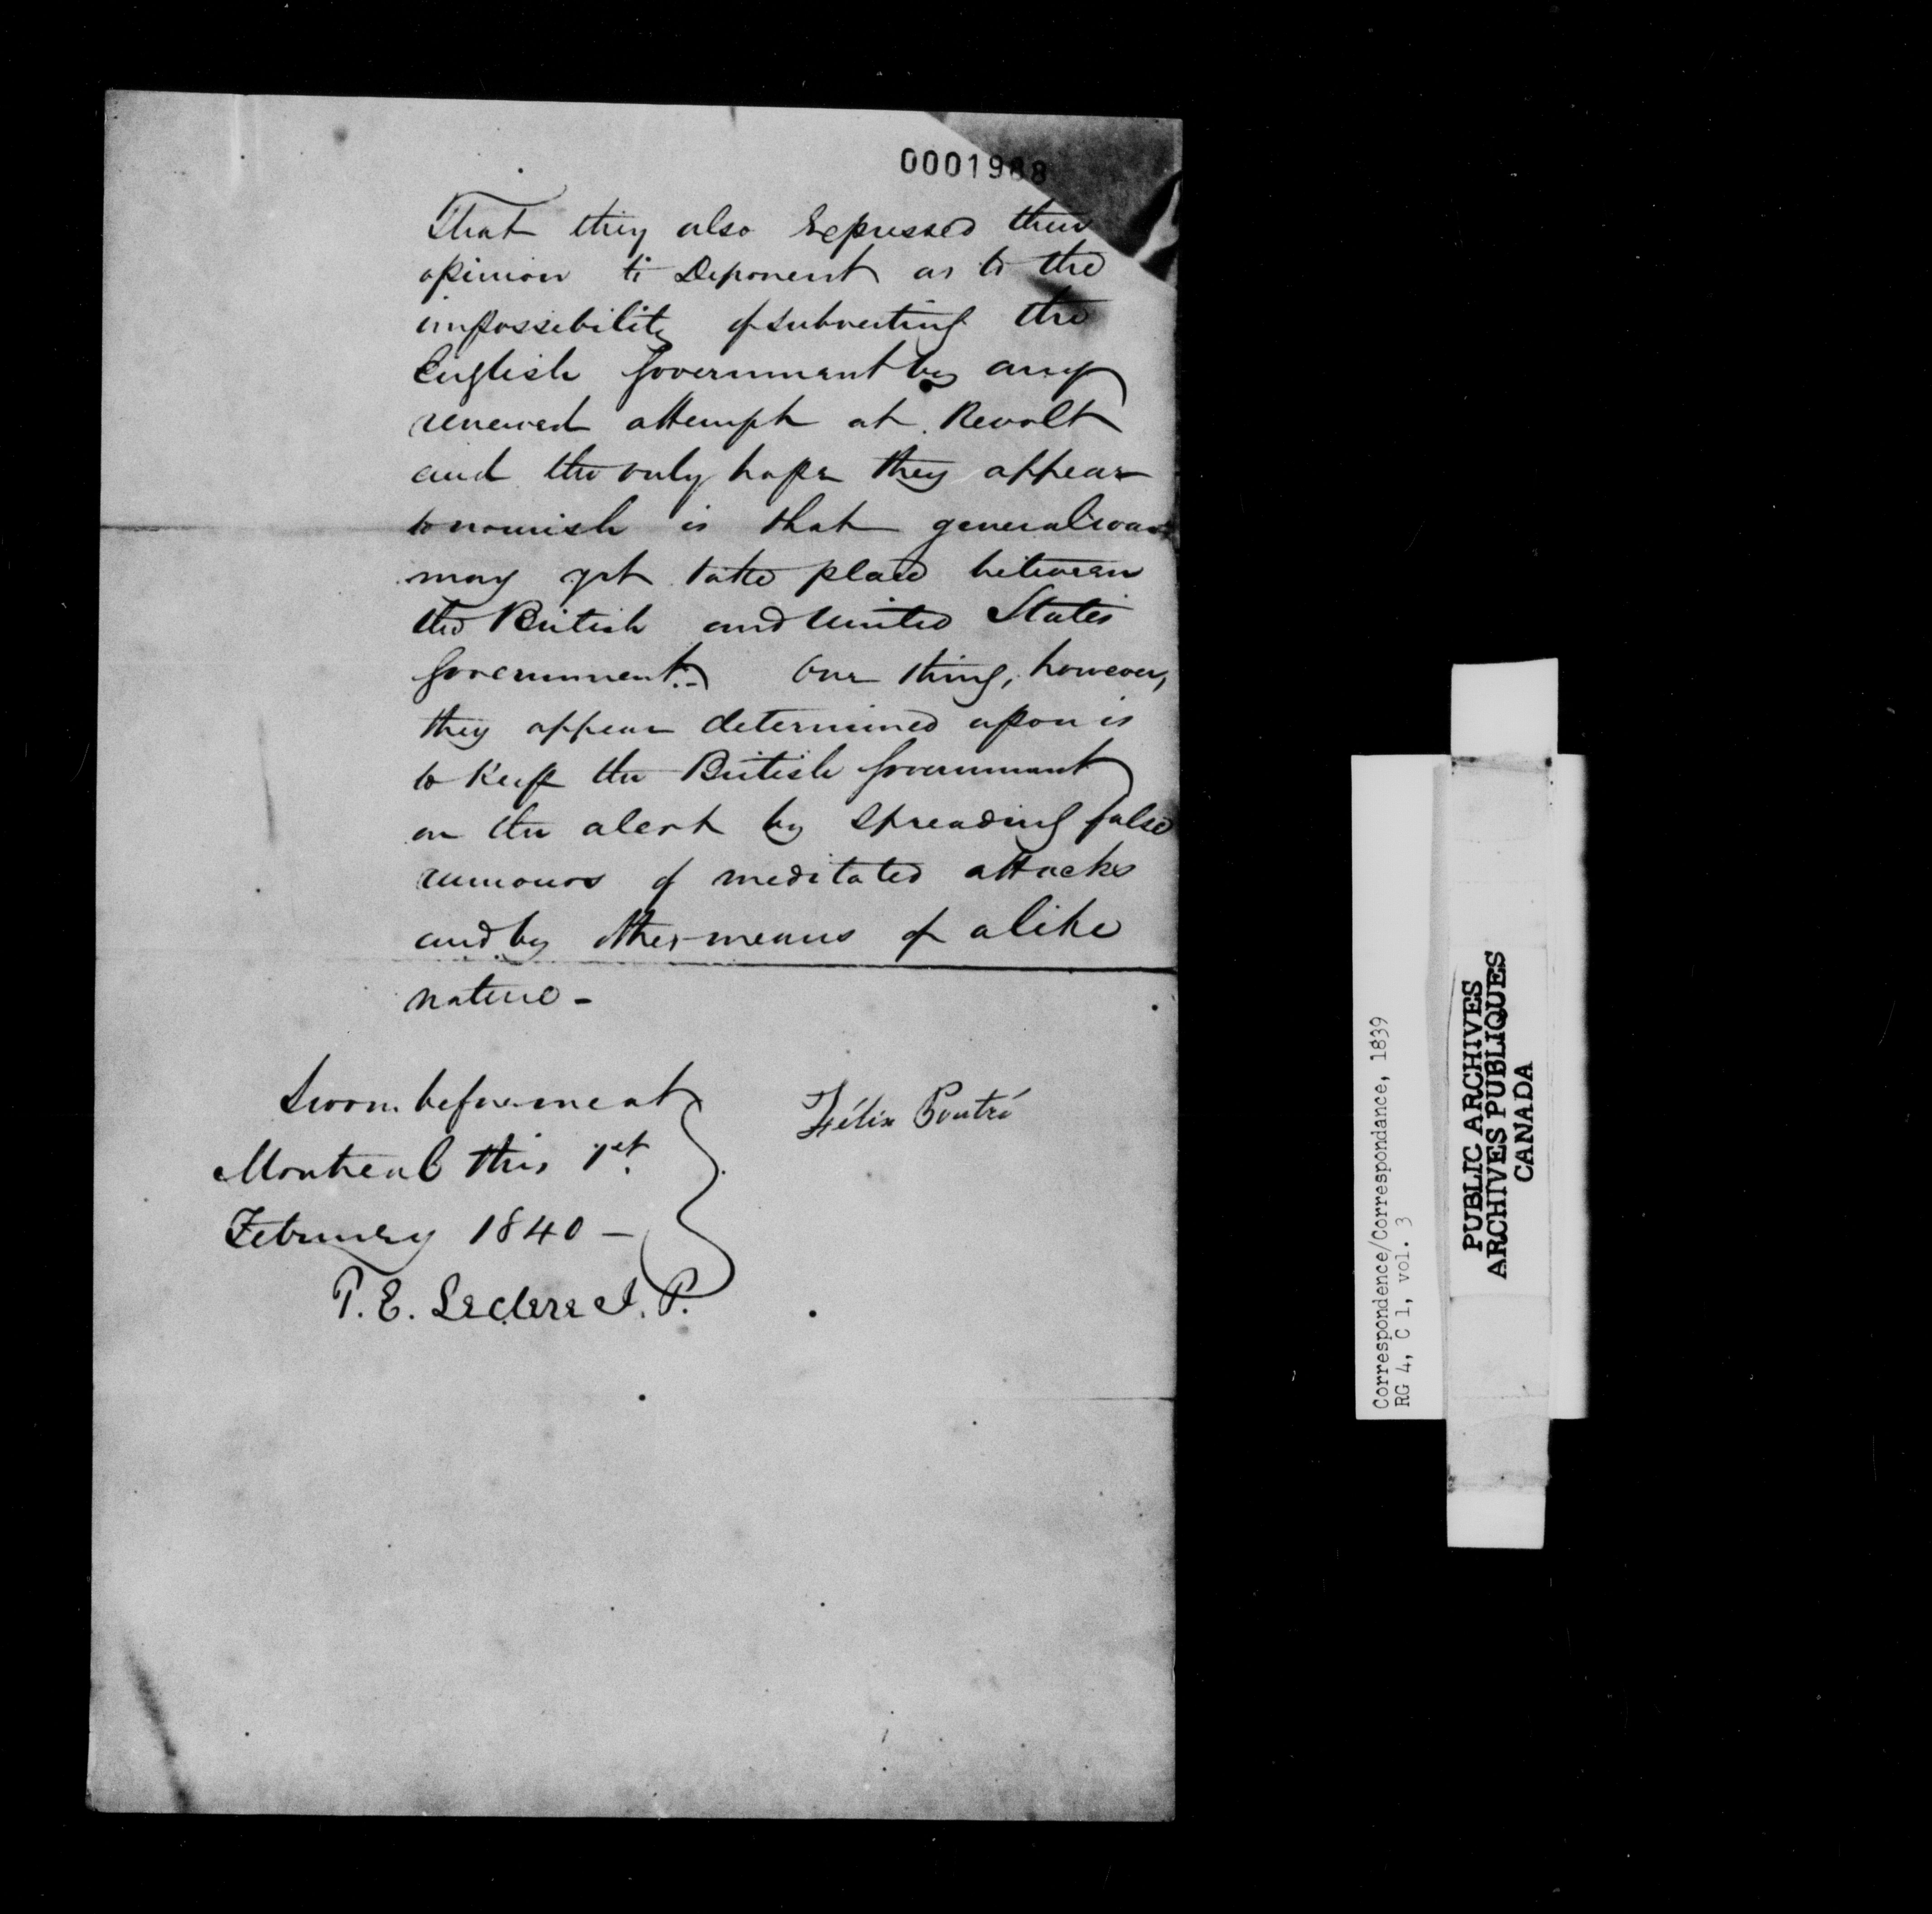 0001988
That they also Expressed their
opinion to Deponent as to the
impossibility of subverting the
English Government by any
renewed attempt at Revolt
and the only hope they appear
to nourish is that general war
may yet take place between
the British and United States
Government.- One thing, however,
they appear determined upon is
to keep the British Government
on the alert by spreading false
rumours of meditated attacks
and by other means of a like
nature -
Sworn before me at
Montreal this 1st
February 1840 -
P. E. Leclere J. P.
Félix Poutré
Correspondence/Correspondance, 1839
RG 4, C 1, vol. 3
PUBLIC ARCHIVES
ARCHIVES PUBLIQUES
CANADA